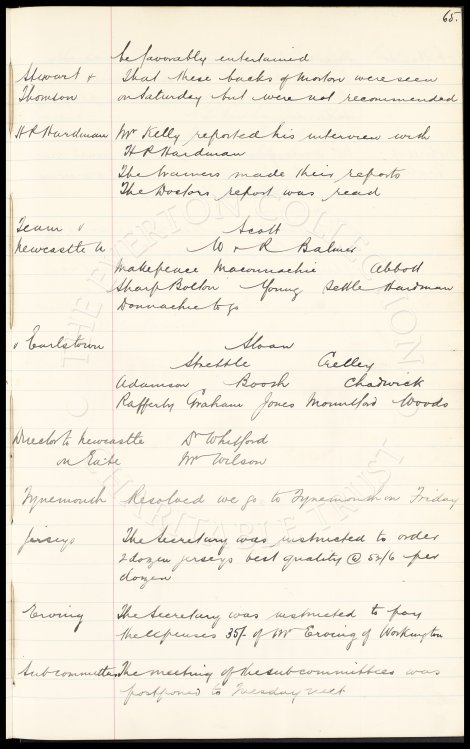 65.
be favorably entertained
Stewart & That these backs of Morton were seen
Thomson on Saturday but were not recommended
H P Hardman Mr Kelly reported his interview with
H P Hardman
The trainers made their reports
The Doctors report was read
Team v Scott
Newcastle U W & R Balmer
Makepeace Maconnachie Abbott
Sharp Bolton Young Settle Hardman
Donnachie to go
v Earlstown Sloan
Strettle Crelley
Adamson Booth Chadwick
Rafferty Graham Jones Mountford Woods
Director to Newcastle Dr Whitford
on Gate Mr Wilson
Tynemouth Resolved we go to Tynemouth on Friday
Jerseys The Secretary was instructed to order
2 dozen jerseys best quality @ 52/6 per
dozen
Erving The Secretary was instructed to pay
the expenses 35/- of Mr Erving of Workington
Subcommittees The meeting of the subcommittees was
postponed to Tuesday next
THE EVERTON COLLECTION
CHARITABLE TRUST